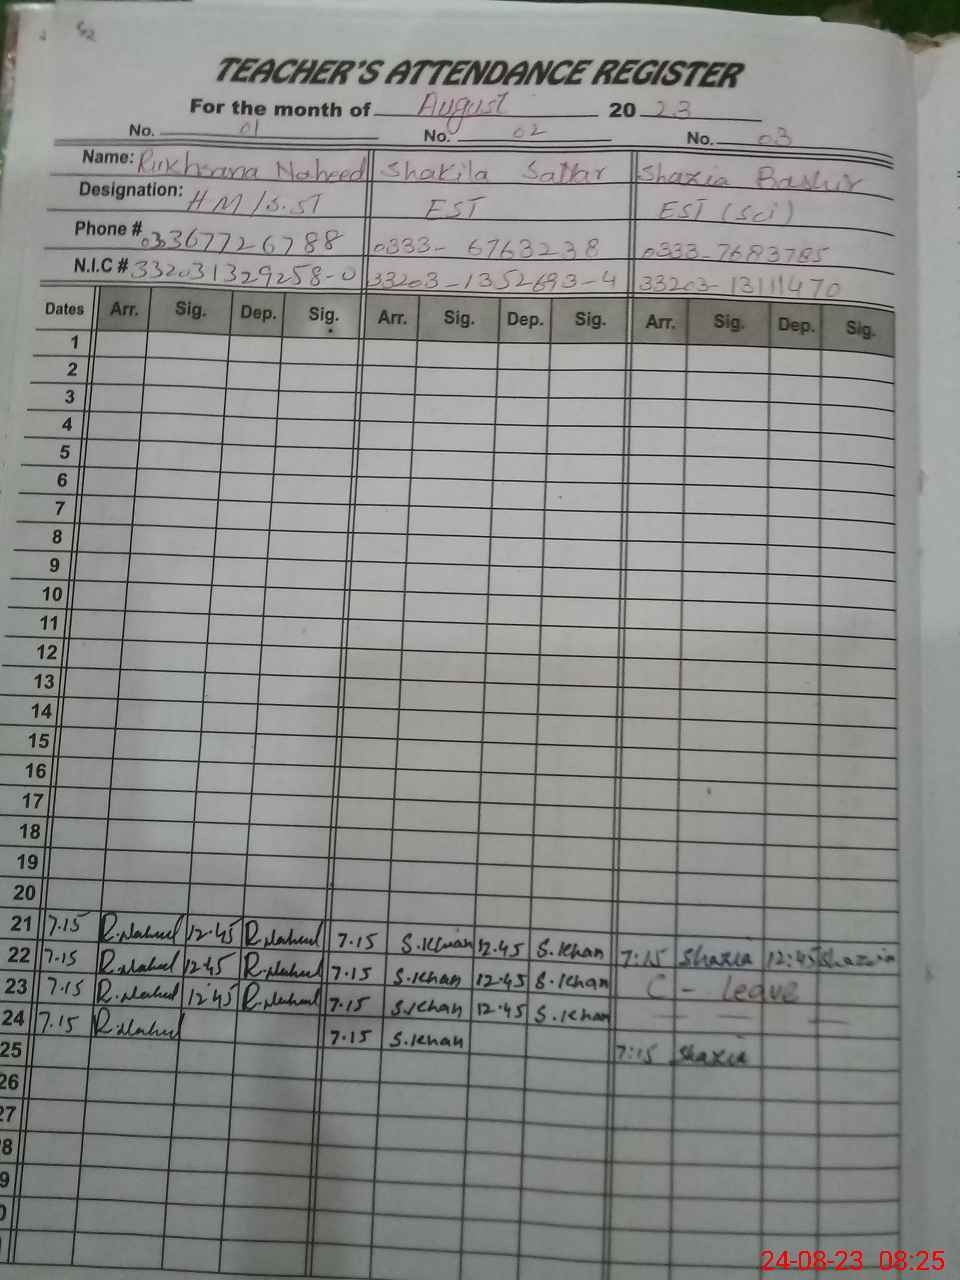 TEACHER'S ATTENDANCE REGISTER
For the month of August 2023
No. 01 No. 02 No. 03
Name: Rukhsana Naheed Shakila Sattar Shazia Bashir
Designation: HM/S.ST EST EST (Sci)
Phone # 03367726788 0333-6763238 0333-7683785
N.I.C # 332031329258-0 33203-1352693-4 33203-13111470
Dates Arr. Sig. Dep. Sig. Arr. Sig. Dep. Sig. Arr. Sig. Dep. Sig.
1
2
3
4
5
6
7
8
9
10
11
12
13
14
15
16
17
18
19
20
21 7.15 R.Naheed 12.45 R.Naheed 7.15 S.Khan 12.45 S.Khan 7:15 Shazia 12:45 Shazia
22 7.15 R.Naheed 12.45 R.Naheed 7.15 S.Khan 12.45 S.Khan C - Leave
23 7.15 R.Naheed 12.45 R.Naheed 7.15 S.Khan 12.45 S.Khan — — —
24 7.15 R.Naheed 7.15 S.Khan 7:15 Shazia
25
26
27
8
9
0
24-08-23 08:25